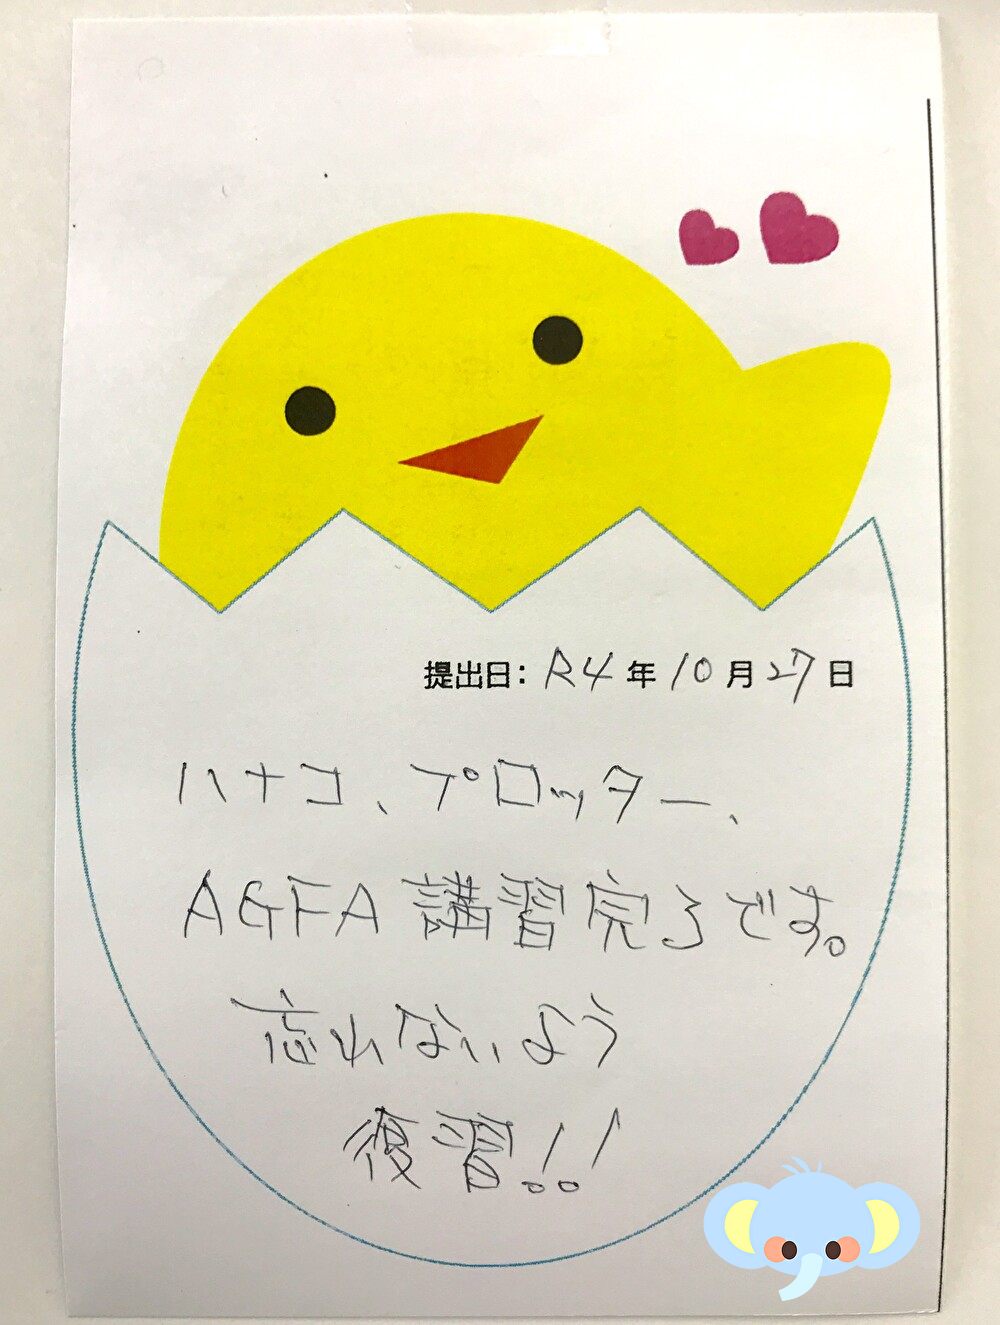 提出日: R4年10月27日
ハナコ、プロッター、
AGFA講習完了です。
忘れないよう
復習!!